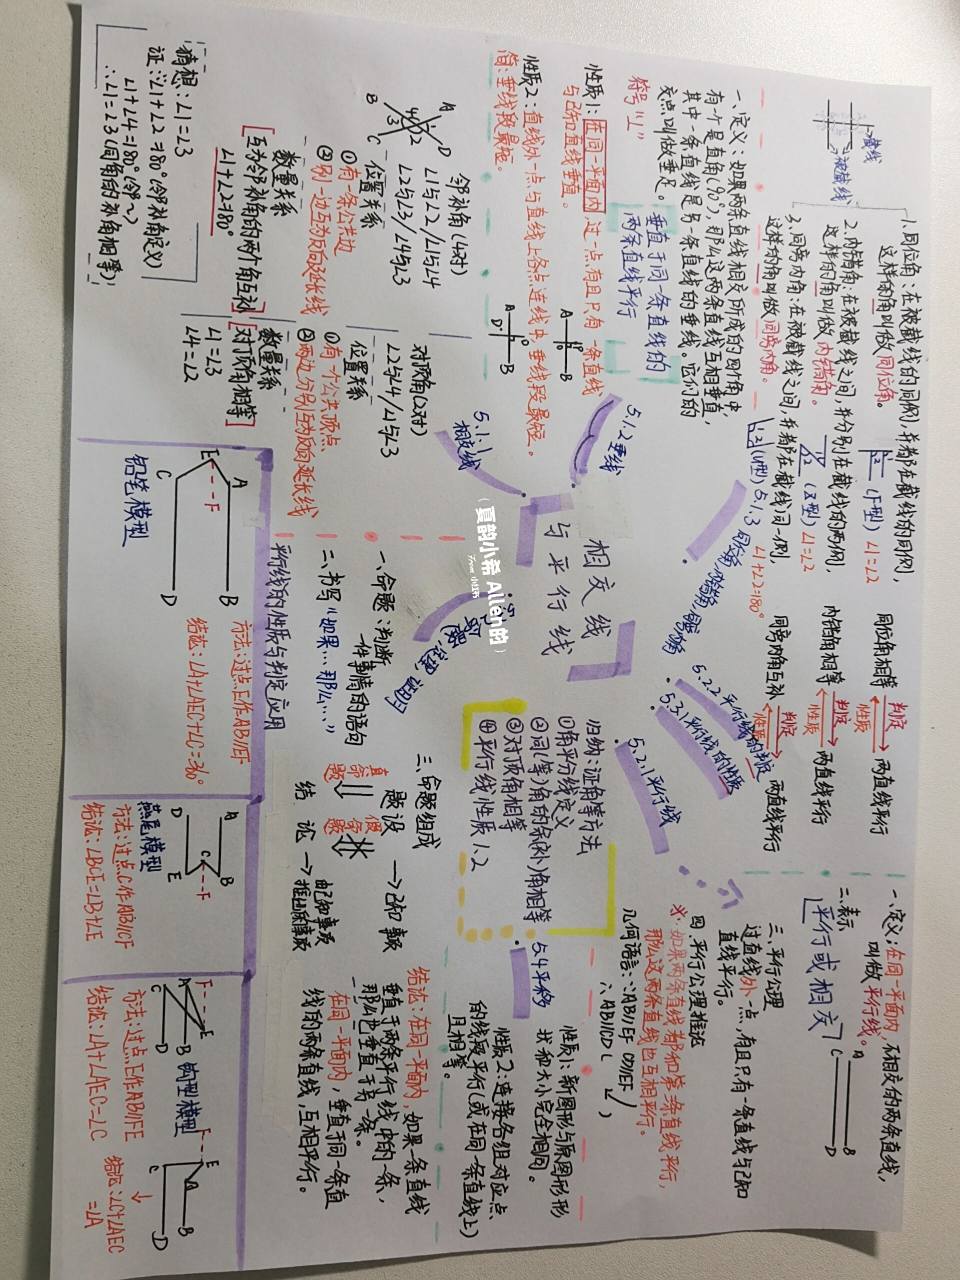 相交线
与平行线
(夏韵小希 Allen的)
5.1.1
相交线
邻补角(4对)
∠1与∠2/∠1与∠4
∠2与∠3/∠4与∠3
位置关系
①有一条公共边
②另一边互为反向延长线
数量关系
互为邻补角的两个角互补
∠1+∠2=180°
对顶角(2对)
∠2与∠4/∠1与∠3
位置关系
①有一个公共顶点
②两边分别互为反向延长线
数量关系
对顶角相等
∠1=∠3
∠4=∠2
猜想:∠1=∠3
证:∵∠1+∠2=180°(邻补角定义)
∠1+∠4=180°(邻~)
∴∠1=∠3(同角的补角相等)
5.1.2垂线
一、定义:如果两条直线相交所成的四个角中,
有一个是直角(90°),那么这两条直线互相垂直,
其中一条直线是另一条直线的垂线。它们的
交点叫做垂足。
符号"⊥"
垂直于同一条直线的
两条直线平行
性质1:在同一平面内,过一点有且只有一条直线
与已知直线垂直。
性质2:直线外一点与直线上各点连线中,垂线段最短。
简:垂线段最短。
截线
被截线
1.同位角:在被截线的同侧,并都在截线的同侧,
这样的角叫做同位角。
(F型) ∠1=∠2
2.内错角:在被截线之间,并分别在截线的两侧,
这样的角叫做内错角。
(Z型) ∠1=∠2
3.同旁内角:在被截线之间,并都在截线同一侧,
这样的角叫做同旁内角。
(U型) 5.1.3 ∠1+∠2=180°
5.2.2平行线的判定
5.3.1平行线的性质
同位角相等 判定 性质 两直线平行
内错角相等 判定 性质 两直线平行
同旁内角互补 判定 性质 两直线平行
5.2.1平行线
一、定义:在同一平面内,不相交的两条直线,
叫做平行线。
二、表示
平行或相交
三、平行公理
过直线外一点,有且只有一条直线与已知
直线平行。
四、平行公理推论
※:如果两条直线都和第三条直线平行,
那么这两条直线也互相平行。
几何语言:∵AB//EF CD//EF
∴AB//CD
归纳:证角等方法
①角平分线定义
②同(等)角的余(补)角相等
③对顶角相等
④平行线性质1.2
5.4平移
性质1:新图形与原图形形
状和大小完全相同。
性质2:连接各组对应点
的线段平行(或在同一条直线上)
且相等。
结论:在同一平面内,如果一条直线
垂直于两条平行线中的一条,
那么也垂直于另一条。
在同一平面内,垂直于同一条直
线的两条直线,互相平行。
一、命题:判断
一件事情的语句
二、书写"如果…那么…"
三、命题组成
题设 → 已知事项
结论 → 由已知事项
推出的事项
真命题
假命题
平行线的性质与判定应用
铅笔模型
方法:过点E作AB//EF
结论:∠A+∠AEC+∠C=360°
燕尾模型
方法:过点C作AB//CF
结论:∠BCE=∠B+∠E
钩型模型
方法:过点E作AB//FE
结论:∠A+∠AEC=∠C
结论:∠C+∠AEC
=∠A